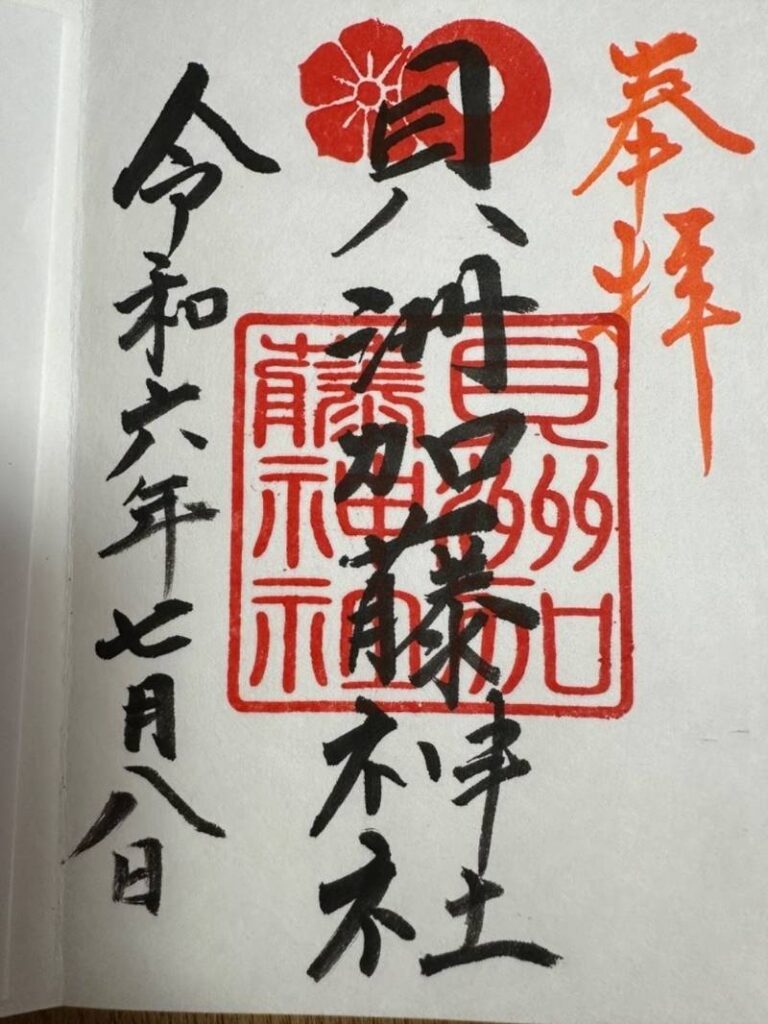 奉拝
貝洲加藤神社
貝洲加藤神社
令和六年七月八日